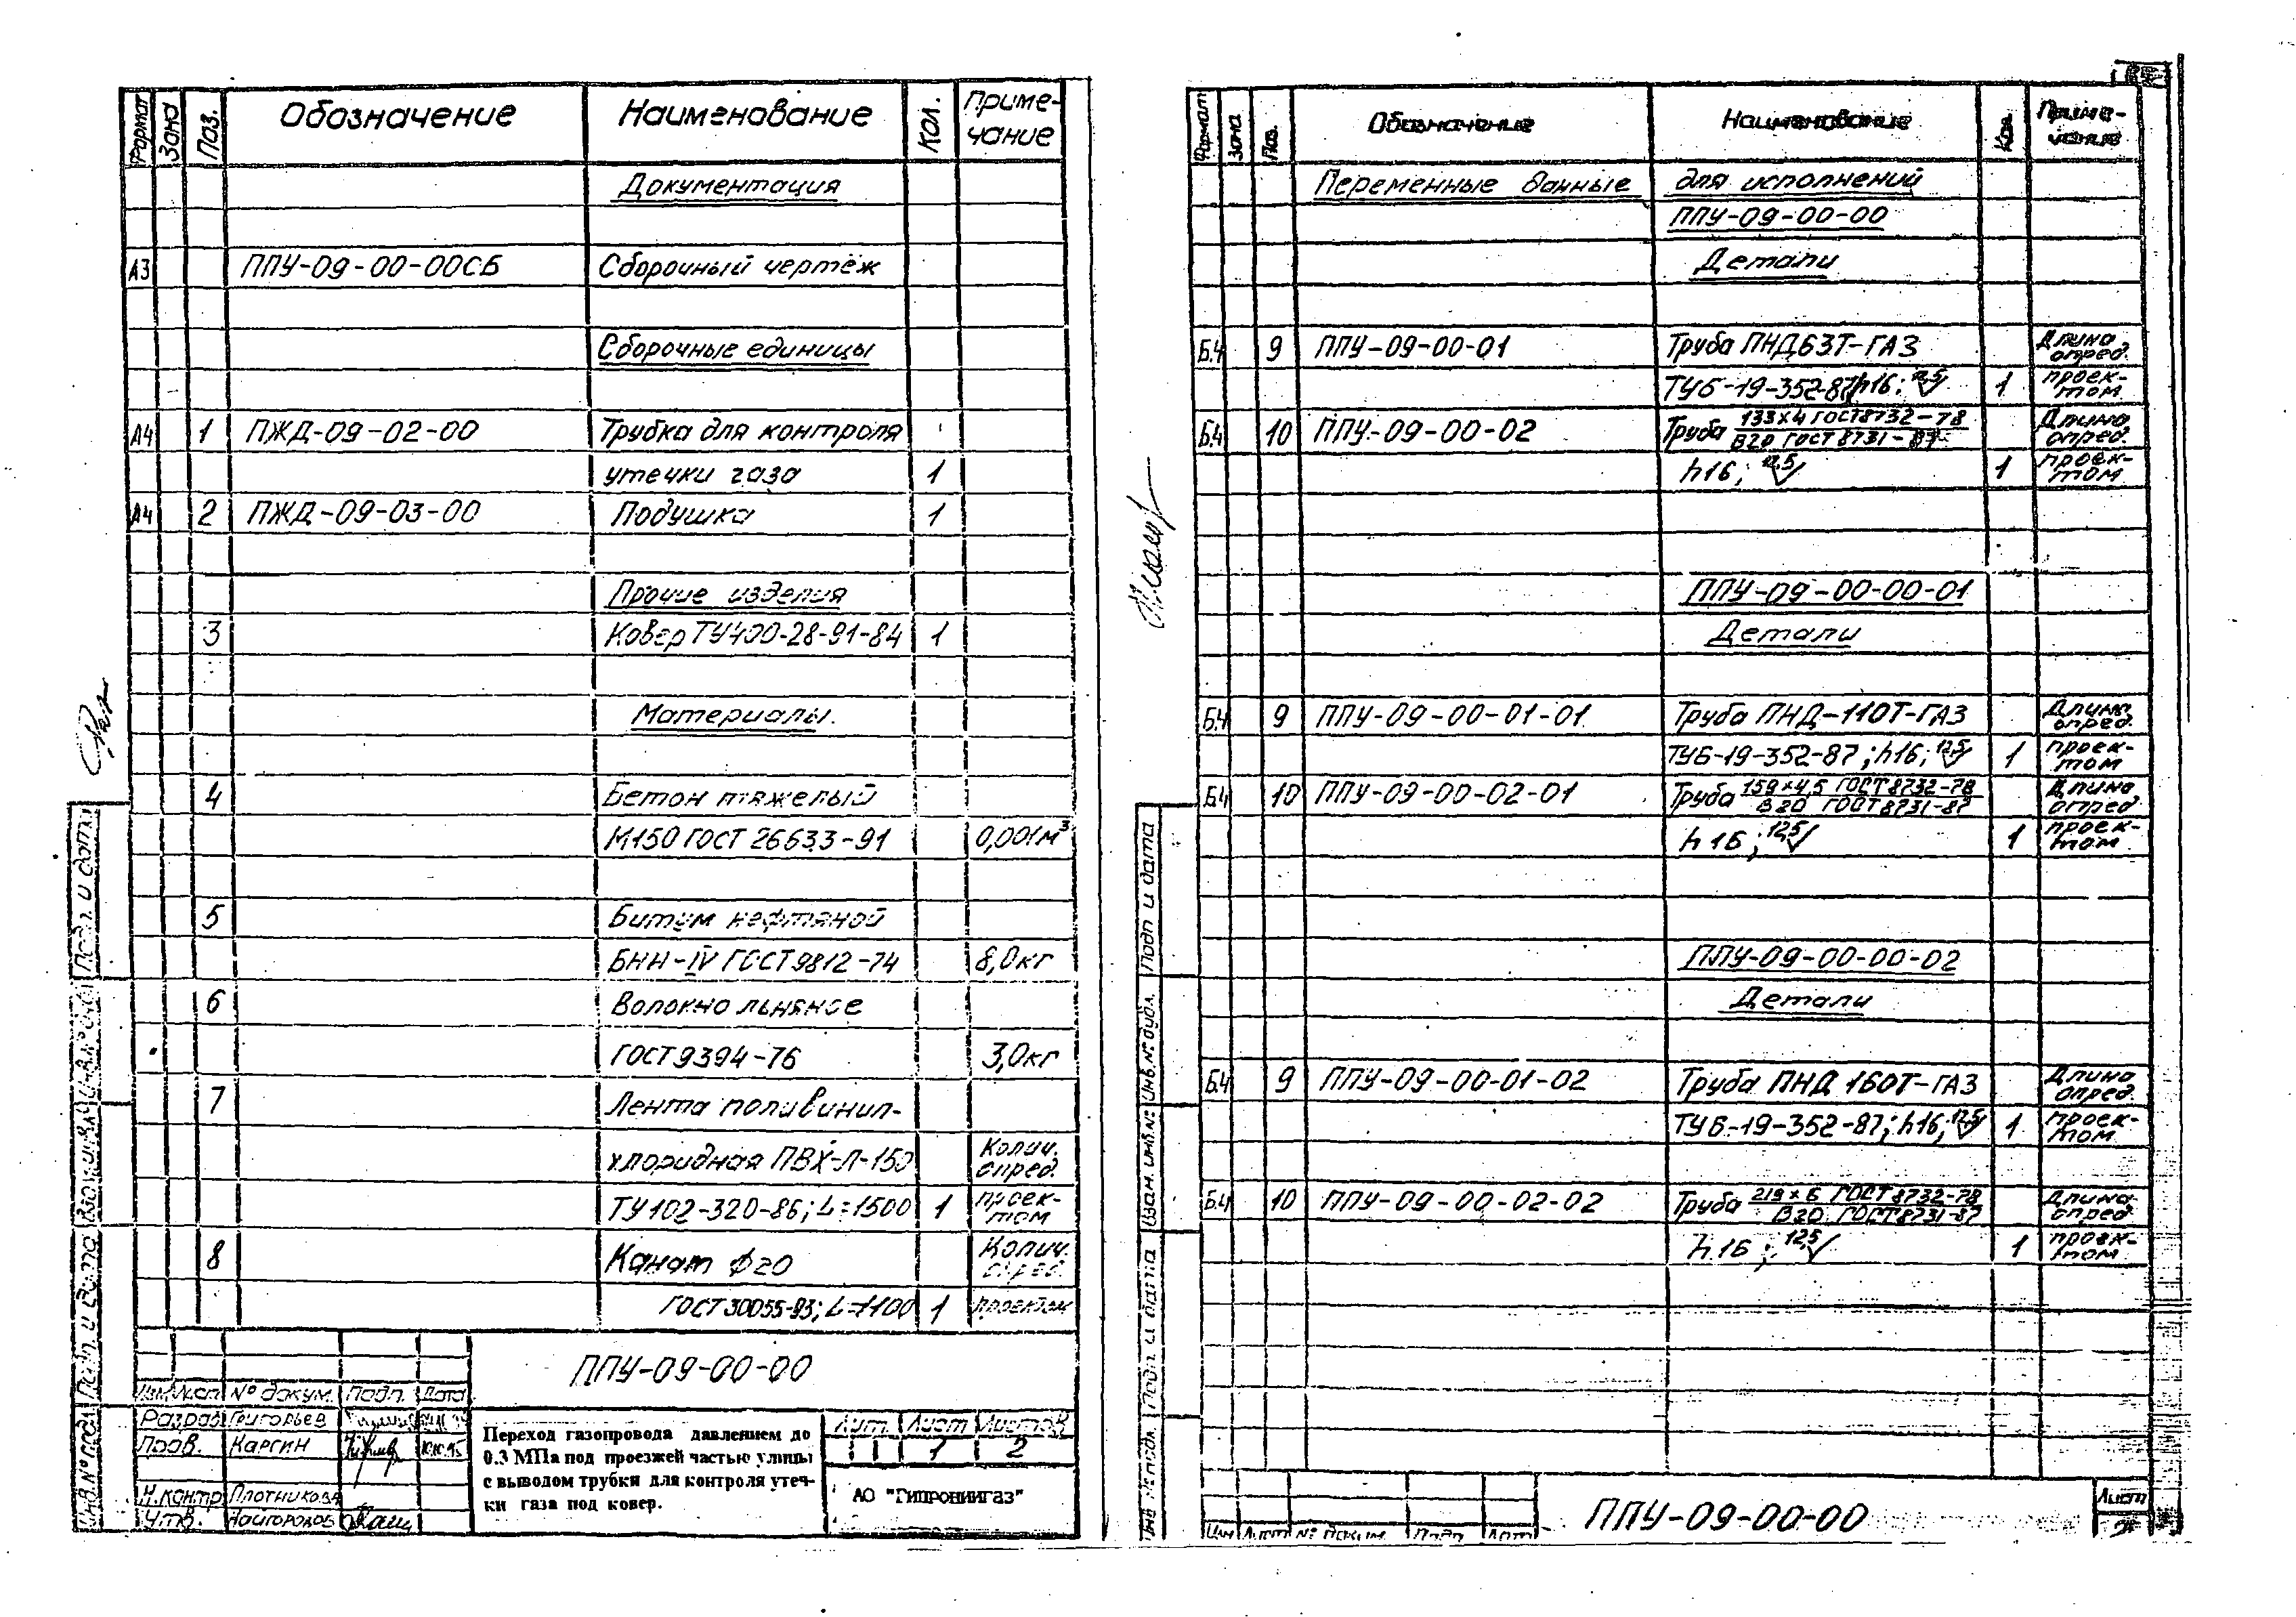 Формат Зона Поз. Обозначение Наименование Кол. Приме-
чание
Документация
А3 ППУ-09-00-00СБ Сборочный чертёж
Сборочные единицы
А4 1 ПЖД-09-02-00 Трубка для контроля
утечки газа 1
А4 2 ПЖД-09-03-00 Подушка 1
Прочие изделия
3 Ковер ТУ400-28-91-84 1
Материалы.
4 Бетон тяжелый
М150 ГОСТ 26633-91 0,001м³
5 Битум нефтяной
БНН-IV ГОСТ9812-74 8,0кг
6 Волокно льняное
ГОСТ9394-76 3,0кг
7 Лента поливинил-
хлоридная ПВХ-Л-150 Колич. опред.
ТУ102-320-86; L=1500 1 проек-
том
8 Канат ϕ20 Колич. опред.
ГОСТ30055-93; L=1100 1 проектом
ППУ-09-00-00
Изм Лист № докум. Подп. Дата
Разраб Григорьев
Пров. Каргин 10.10.95
Н.контр Плотникова
Утв.
Переход газопровода давлением до
0.3 МПа под проезжей частью улицы
с выводом трубки для контроля утеч-
ки газа под ковер.
Лит. Лист Листов
1 2
АО "Гипрониигаз"
Подп. и дата
Подп. и дата
Инв. № подл
Формат Зона Поз. Обозначение Наименование Кол. Приме-
чание
Переменные данные для исполнений
ППУ-09-00-00
Детали
Б4 9 ППУ-09-00-01 Труба ПНД63Т-ГАЗ Длина опред.
ТУ6-19-352-87; h16; 12,5 1 проек-
том
Б4 10 ППУ-09-00-02 Труба 133×4 ГОСТ8732-78 Длина опред.
В20 ГОСТ 8731-87
h16; 12,5 1 проек-
том
ППУ-09-00-00-01
Детали
Б4 9 ППУ-09-00-01-01 Труба ПНД-110Т-ГАЗ Длина опред.
ТУ6-19-352-87; h16; 12,5 1 проек-
том
Б4 10 ППУ-09-00-02-01 Труба 159×4,5 ГОСТ8732-78 Длина опред.
В20 ГОСТ8731-87
h16; 12,5 1 проек-
том
ППУ-09-00-00-02
Детали
Б4 9 ППУ-09-00-01-02 Труба ПНД 160Т-ГАЗ Длина опред.
ТУ6-19-352-87; h16; 12,5 1 проек-
том
Б4 10 ППУ-09-00-02-02 Труба 219×6 ГОСТ8732-78 Длина опред.
В20 ГОСТ8731-87
h16; 12,5 1 проек-
том
Подп и дата
Инв. № дубл.
Взам. инв. №
Подп. и дата
Инв № подл.
Изм Лист № докум. Подп Дат
ППУ-09-00-00
Лист
2